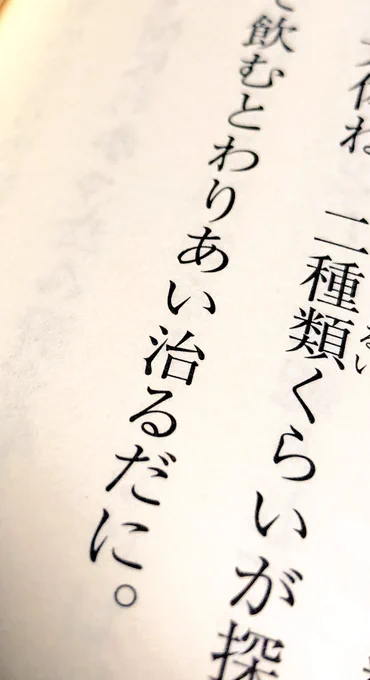 二種類くらいが探
て飲むとわりあい治るだに。